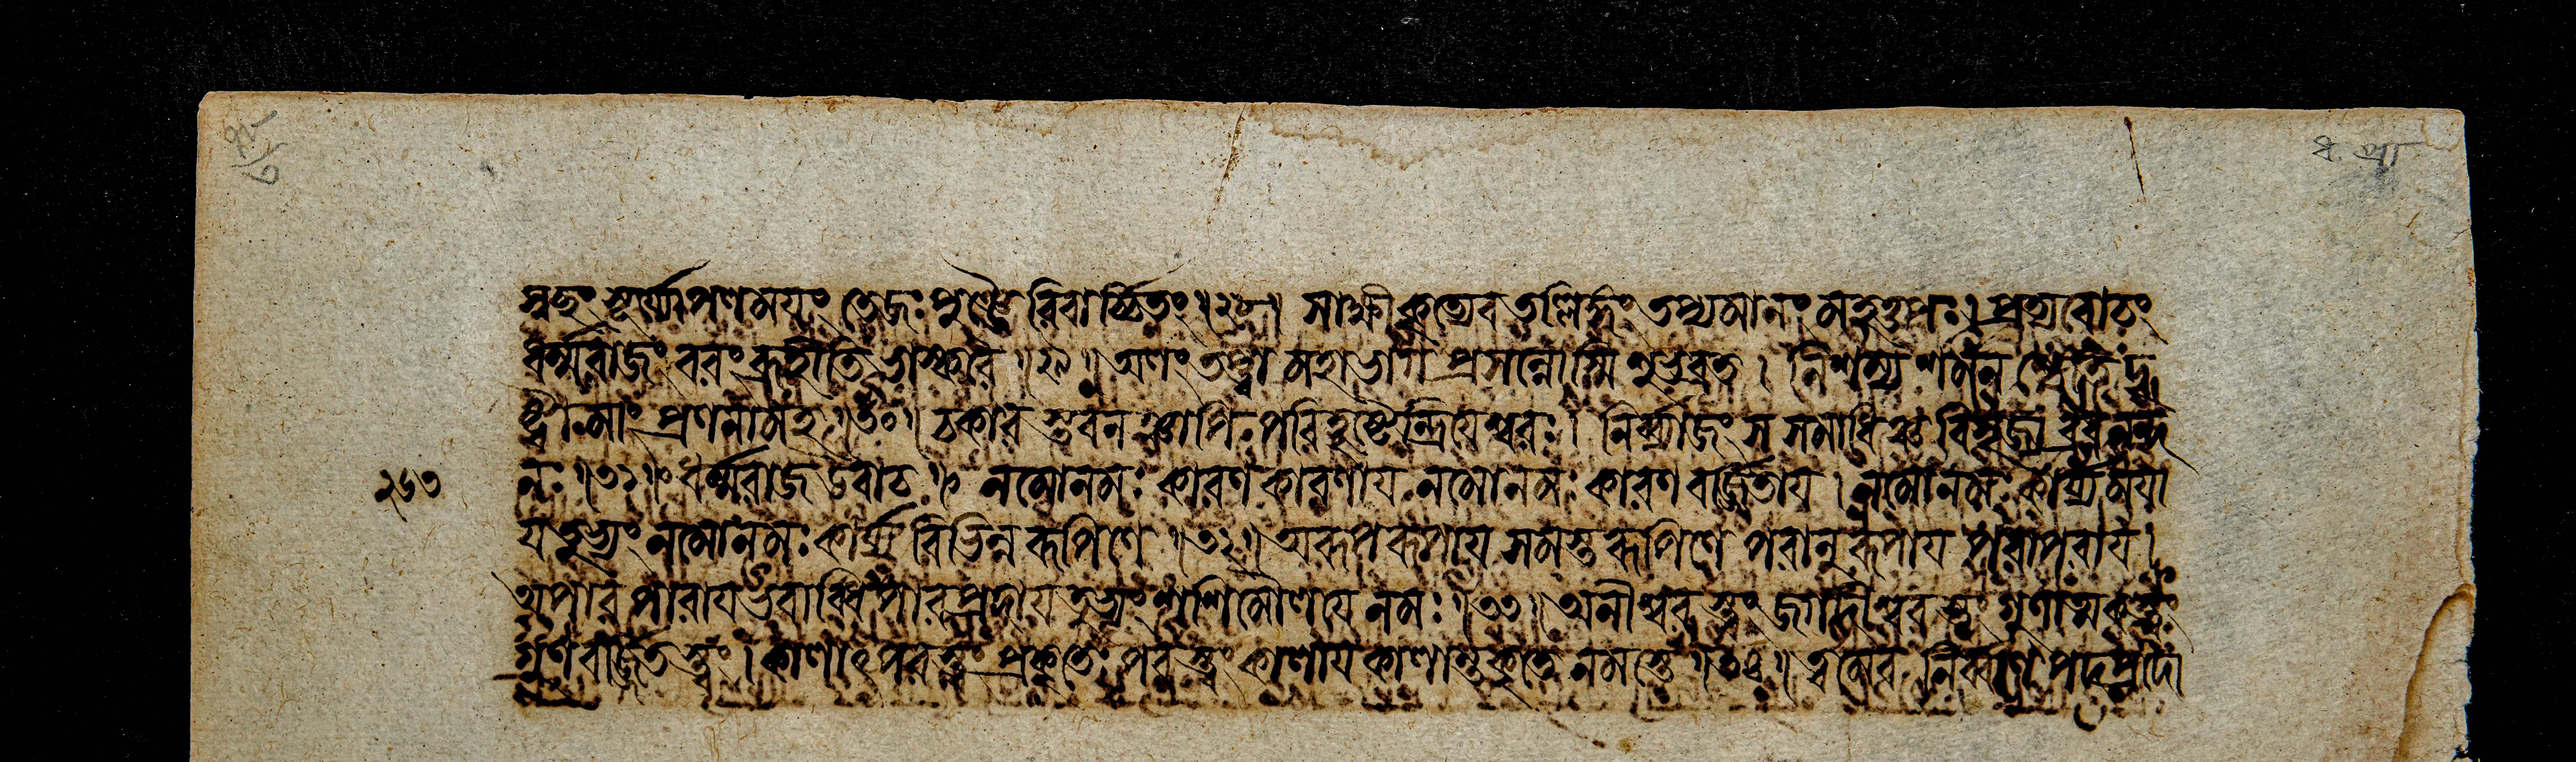 স্বচ্ছং সূর্য্যোপলময়ং তেজঃপুঞ্জৈরিবার্চ্চিতং ॥২৮॥ সাক্ষীকৃত্যেব তল্লিঙ্গং তপ্যমানং মহত্তপঃ। প্রত্যুবাচং
ধর্ম্মরাজং বরং ব্রূহীতি ভাস্করে ॥২৯॥ অলং তপ্ত্বা মহাভাগ প্রসন্নোস্মি শুভব্রত । নিশম্য শমনশ্চেতি দৃ
ষ্ট্বা প্রণনাম হ ॥৩০॥ চকার স্তবনঞ্চাপি পরিহৃষ্টেন্দ্রিয়েশ্বরঃ। নির্ব্যাজং স সমাধিঞ্চ বিসৃজ্য ব্রধ্ননন্দ
২৬৩
নঃ ॥৩১॥ ধর্ম্মরাজ উবাচ ॥ নমোনমঃ কারণকারণায় নমোনমঃ কারণবর্জ্জিতায় । নমোনমঃ কার্য্যময়া
য় তুভ্যং নমোনমঃ কার্য্যবিভিন্নরূপিণে ॥৩২॥ অরূপরূপায় সমস্তরূপিণে পরানুরূপায় পরাপরায় ।
অপারপারায় ভবাব্ধিপারপ্রদায় তুভ্যং শশিমৌলয়ে নমঃ ॥৩৩॥ অনীশ্বরস্ত্বং জগদীশ্বরস্ত্বং গুণাত্মকস্ত্বং
গুণবর্জ্জিতস্ত্বং । কালাৎপরস্ত্বং প্রকৃতেঃ পরস্ত্বং কালায় কালাত্তুকৃতে নমস্তে ॥৩৪॥ ত্বমেব নির্ব্বাণপদপ্রদো